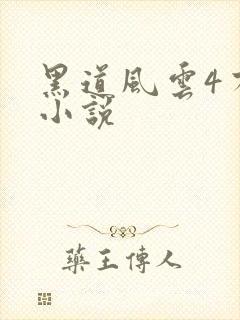 黑道風雲4
小說
藥王傳人